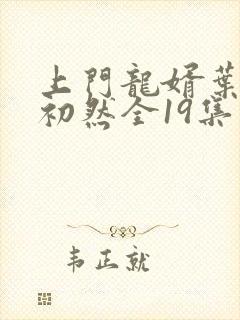 上門龍婿葉
初然全19集
韦正就